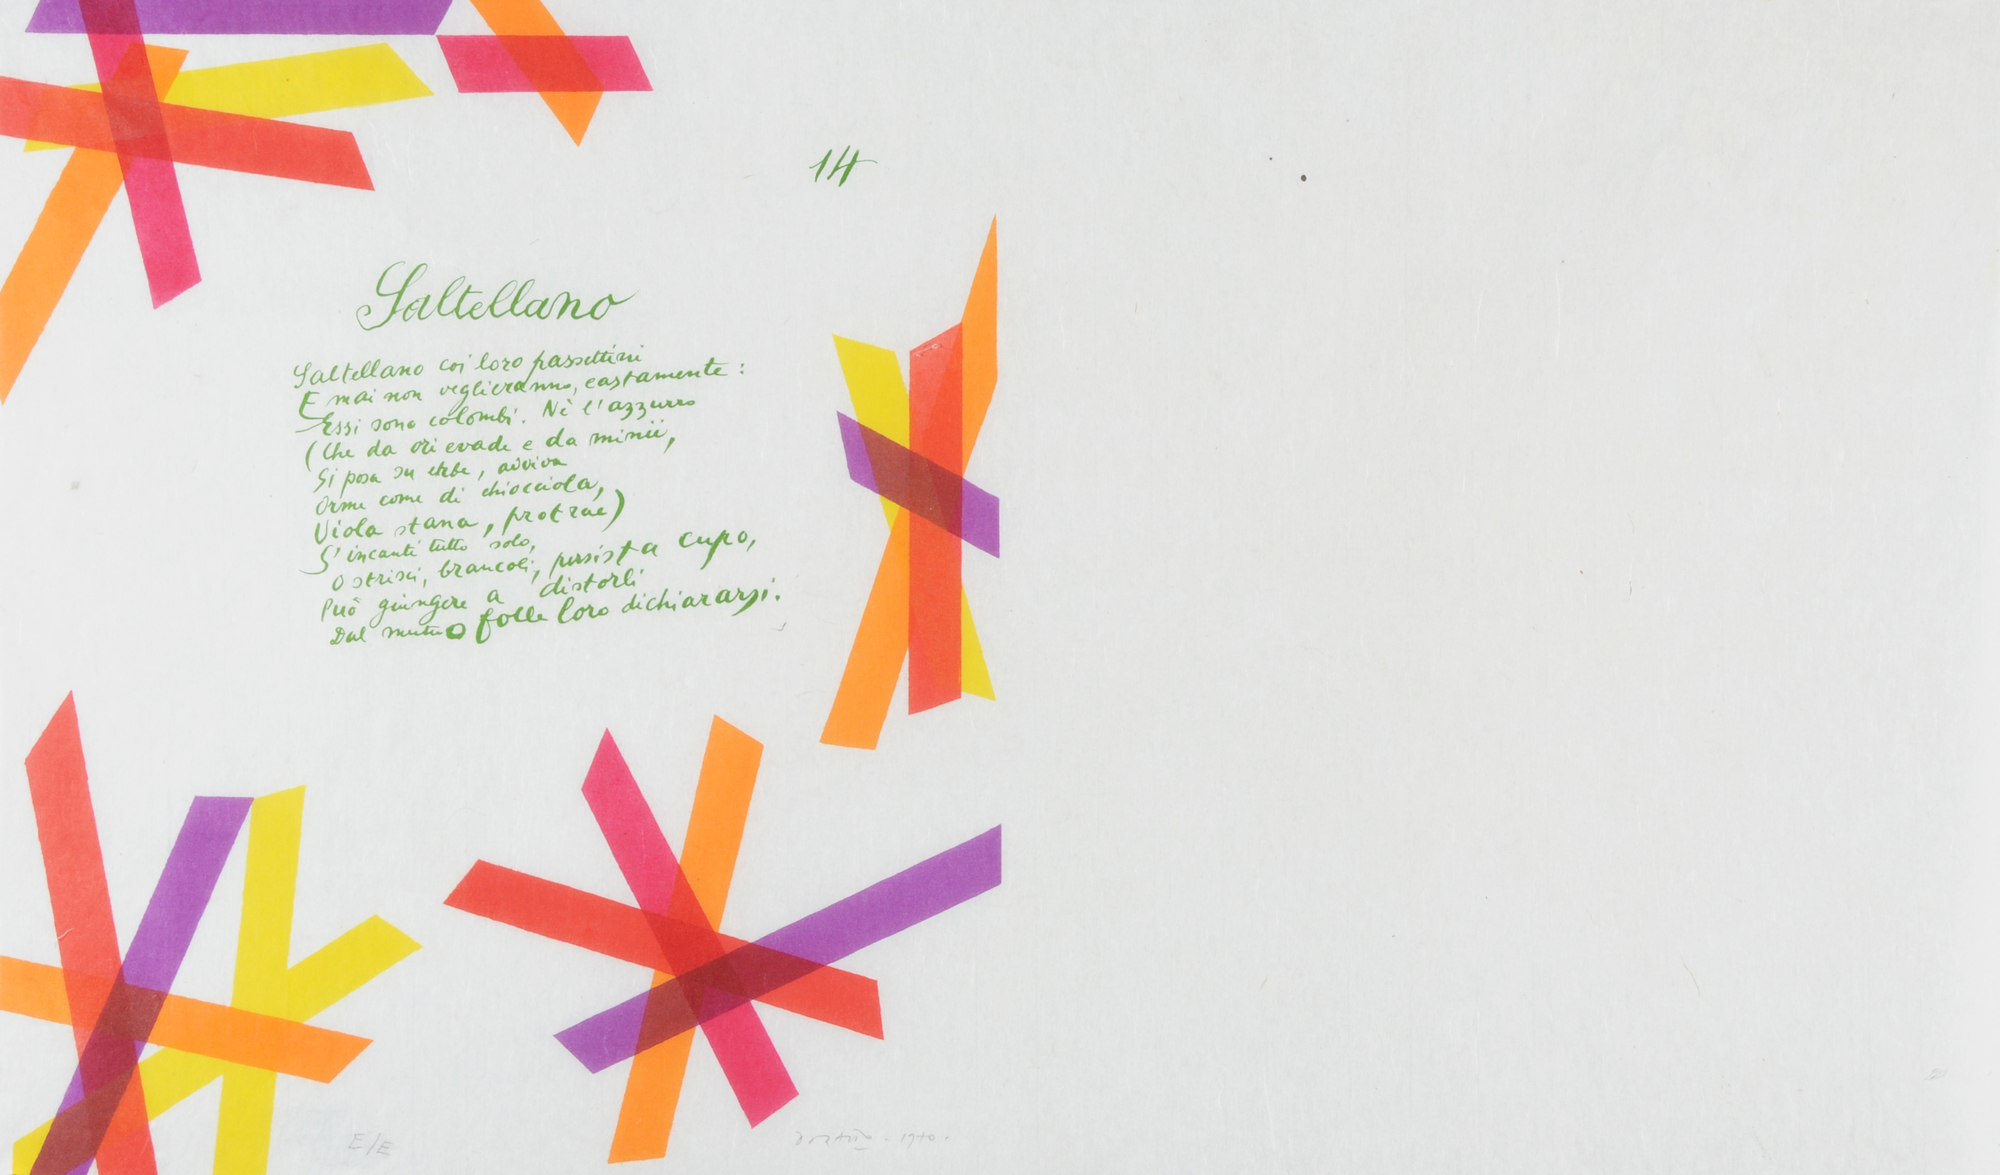 14
Saltellano
Saltellano coi loro passettini
E mai non veglieranno, castamente:
Essi sono colombi. Nè l'azzurro
(Che da ori evade e da minii,
Si posa su erbe, avviva
Orme come di chiocciola,
Viola stana, protrae)
S'incanti tutto solo,
O strisci, brancoli, persista cupo,
Può giungere a distorli
Dal mutuo folle loro dichiararsi.
E/E